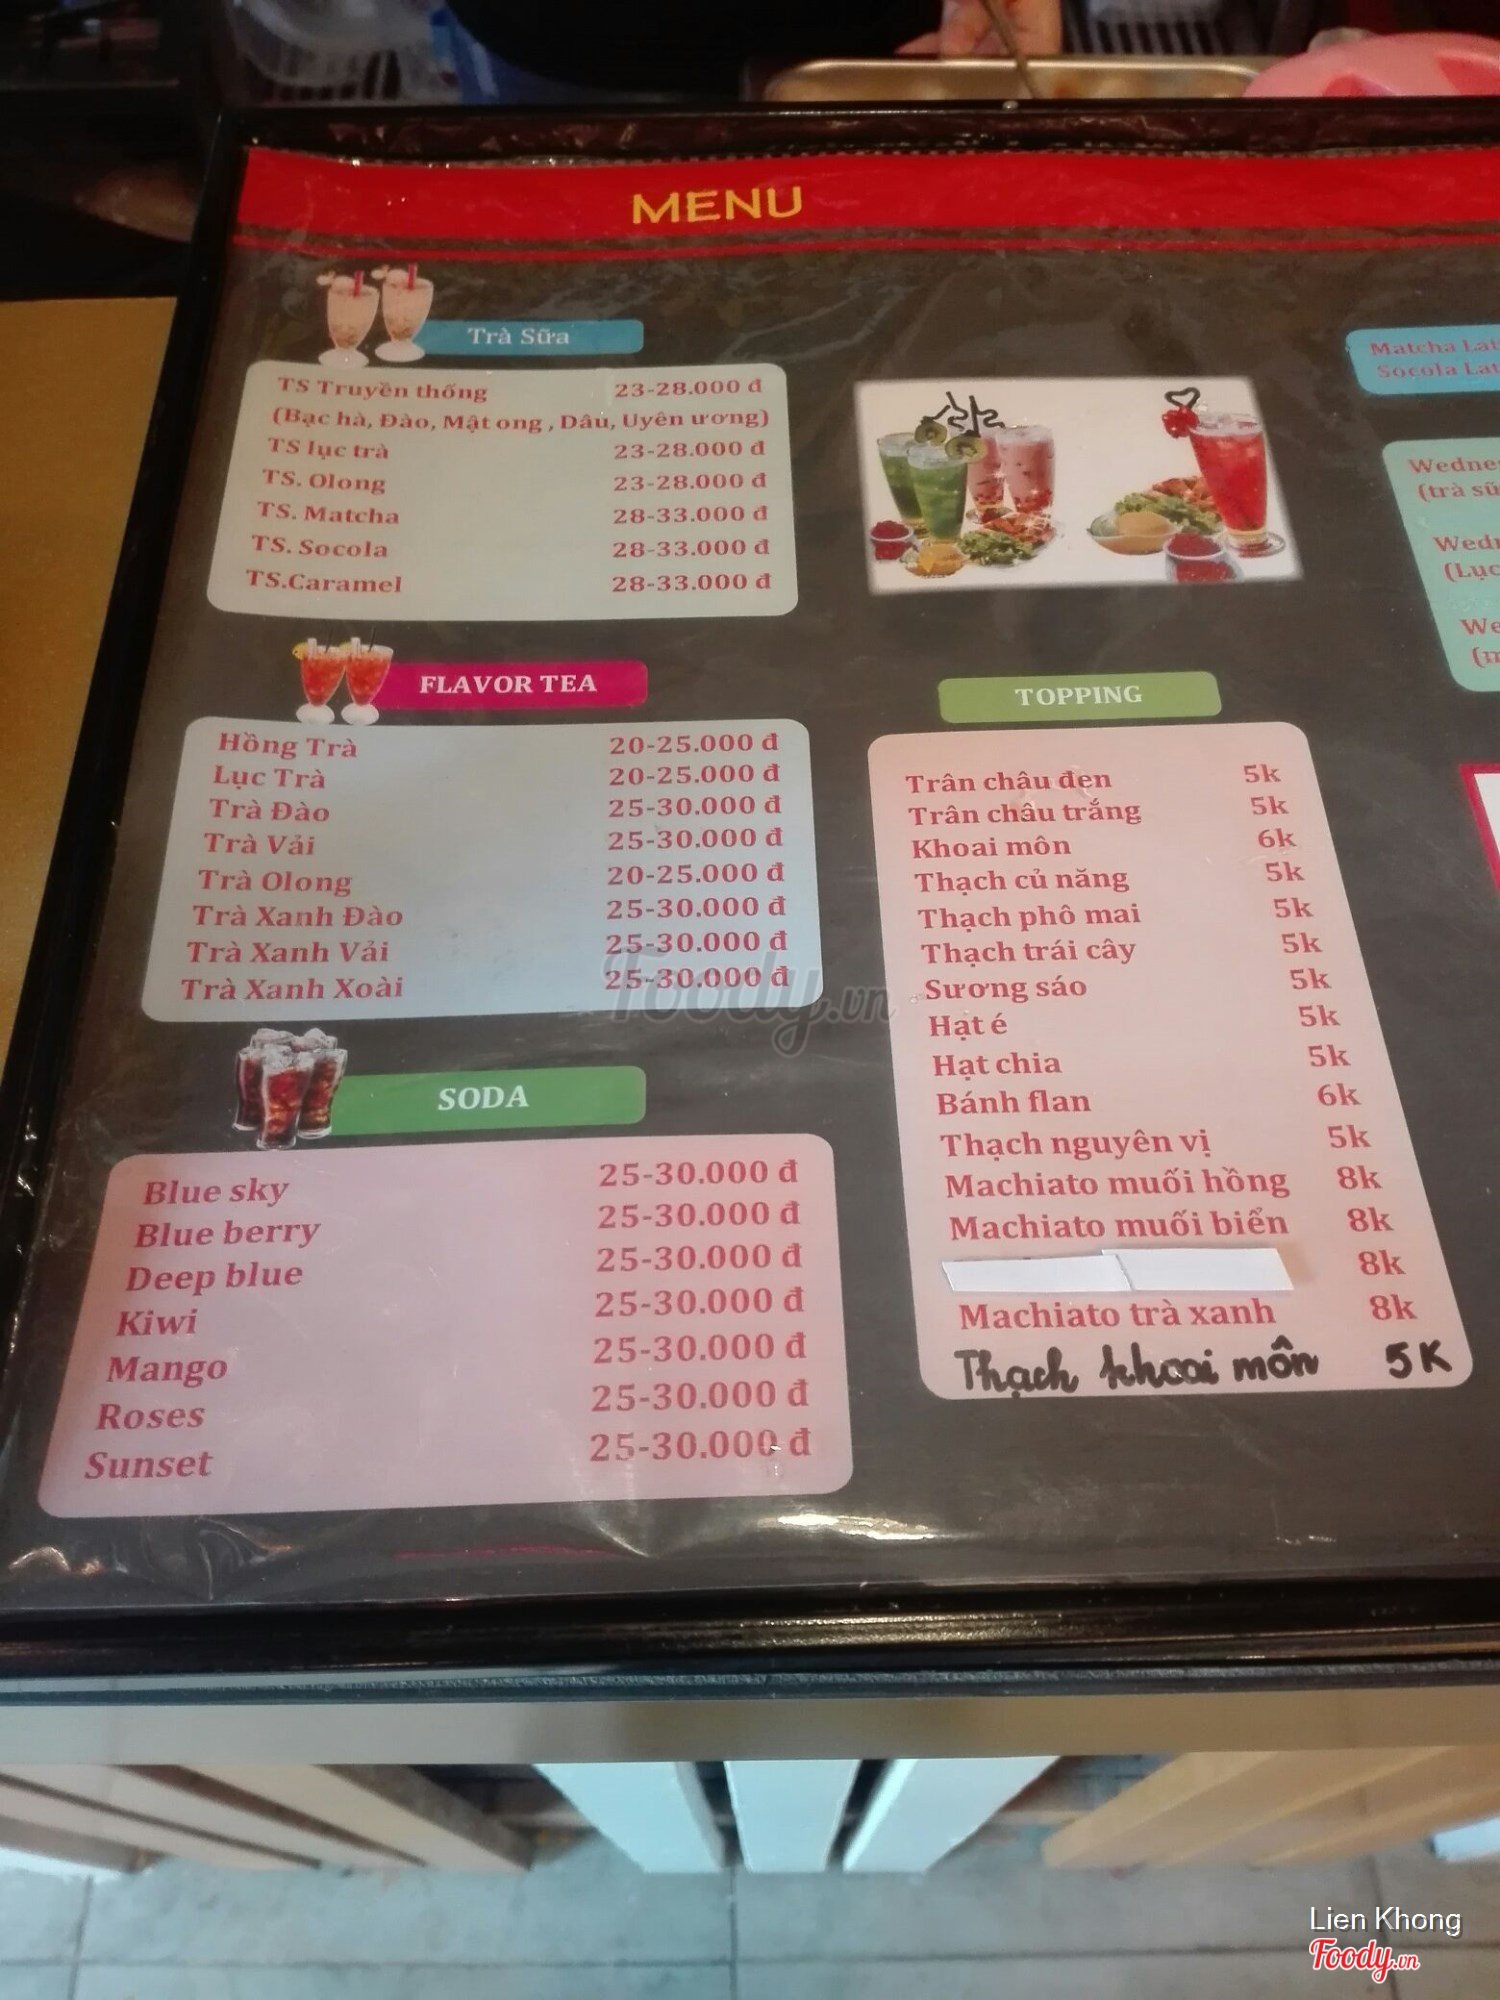 MENU
Trà Sữa
TS Truyền thống 23-28.000 đ
(Bạc hà, Đào, Mật ong , Dâu, Uyên ương)
TS lục trà 23-28.000 đ
TS. Olong 23-28.000 đ
TS. Matcha 28-33.000 đ
TS. Socola 28-33.000 đ
TS.Caramel 28-33.000 đ
FLAVOR TEA
Hồng Trà 20-25.000 đ
Lục Trà 20-25.000 đ
Trà Đào 25-30.000 đ
Trà Vải 25-30.000 đ
Trà Olong 20-25.000 đ
Trà Xanh Đào 25-30.000 đ
Trà Xanh Vải 25-30.000 đ
Trà Xanh Xoài 25-30.000 đ
SODA
Blue sky 25-30.000 đ
Blue berry 25-30.000 đ
Deep blue 25-30.000 đ
Kiwi 25-30.000 đ
Mango 25-30.000 đ
Roses 25-30.000 đ
Sunset 25-30.000 đ
TOPPING
Trân châu đen 5k
Trân châu trắng 5k
Khoai môn 6k
Thạch củ năng 5k
Thạch phô mai 5k
Thạch trái cây 5k
Sương sáo 5k
Hạt é 5k
Hạt chia 5k
Bánh flan 6k
Thạch nguyên vị 5k
Machiato muối hồng 8k
Machiato muối biển 8k
8k
Machiato trà xanh 8k
Thạch khoai môn 5K
Matcha Lat
Socola Lat
Wednes
(trà sữ
Wedn
(Lục
We
Foody.vn
Lien Khong
Foody.vn